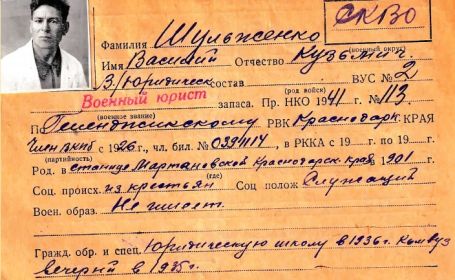 СКВО
(военный округ)
Фамилия Шульженко
Имя Василий Отчество Кузьмич.
3/Юридическ состав ВУС № 2
(род войск)
Военный юрист запаса. Пр. НКО 1941 г. № 113
(военное звание)
По Геленджикскому РВК Краснодарк. КРАЯ
Член ВКПб с 1926 г., чл. бил. № 0394114, в РККА с 19 по 19 г.
(партийность)
Род. в станице Мартановской Краснодарск края, 1901 г.
(где)
Соц. происх. из крестьян Соц полож Служащий
Воен. образ. Не имеет.
Гражд. обр. и спец. Юридическую школу в 1936 г. Комвуз
вечерний в 1935 г.